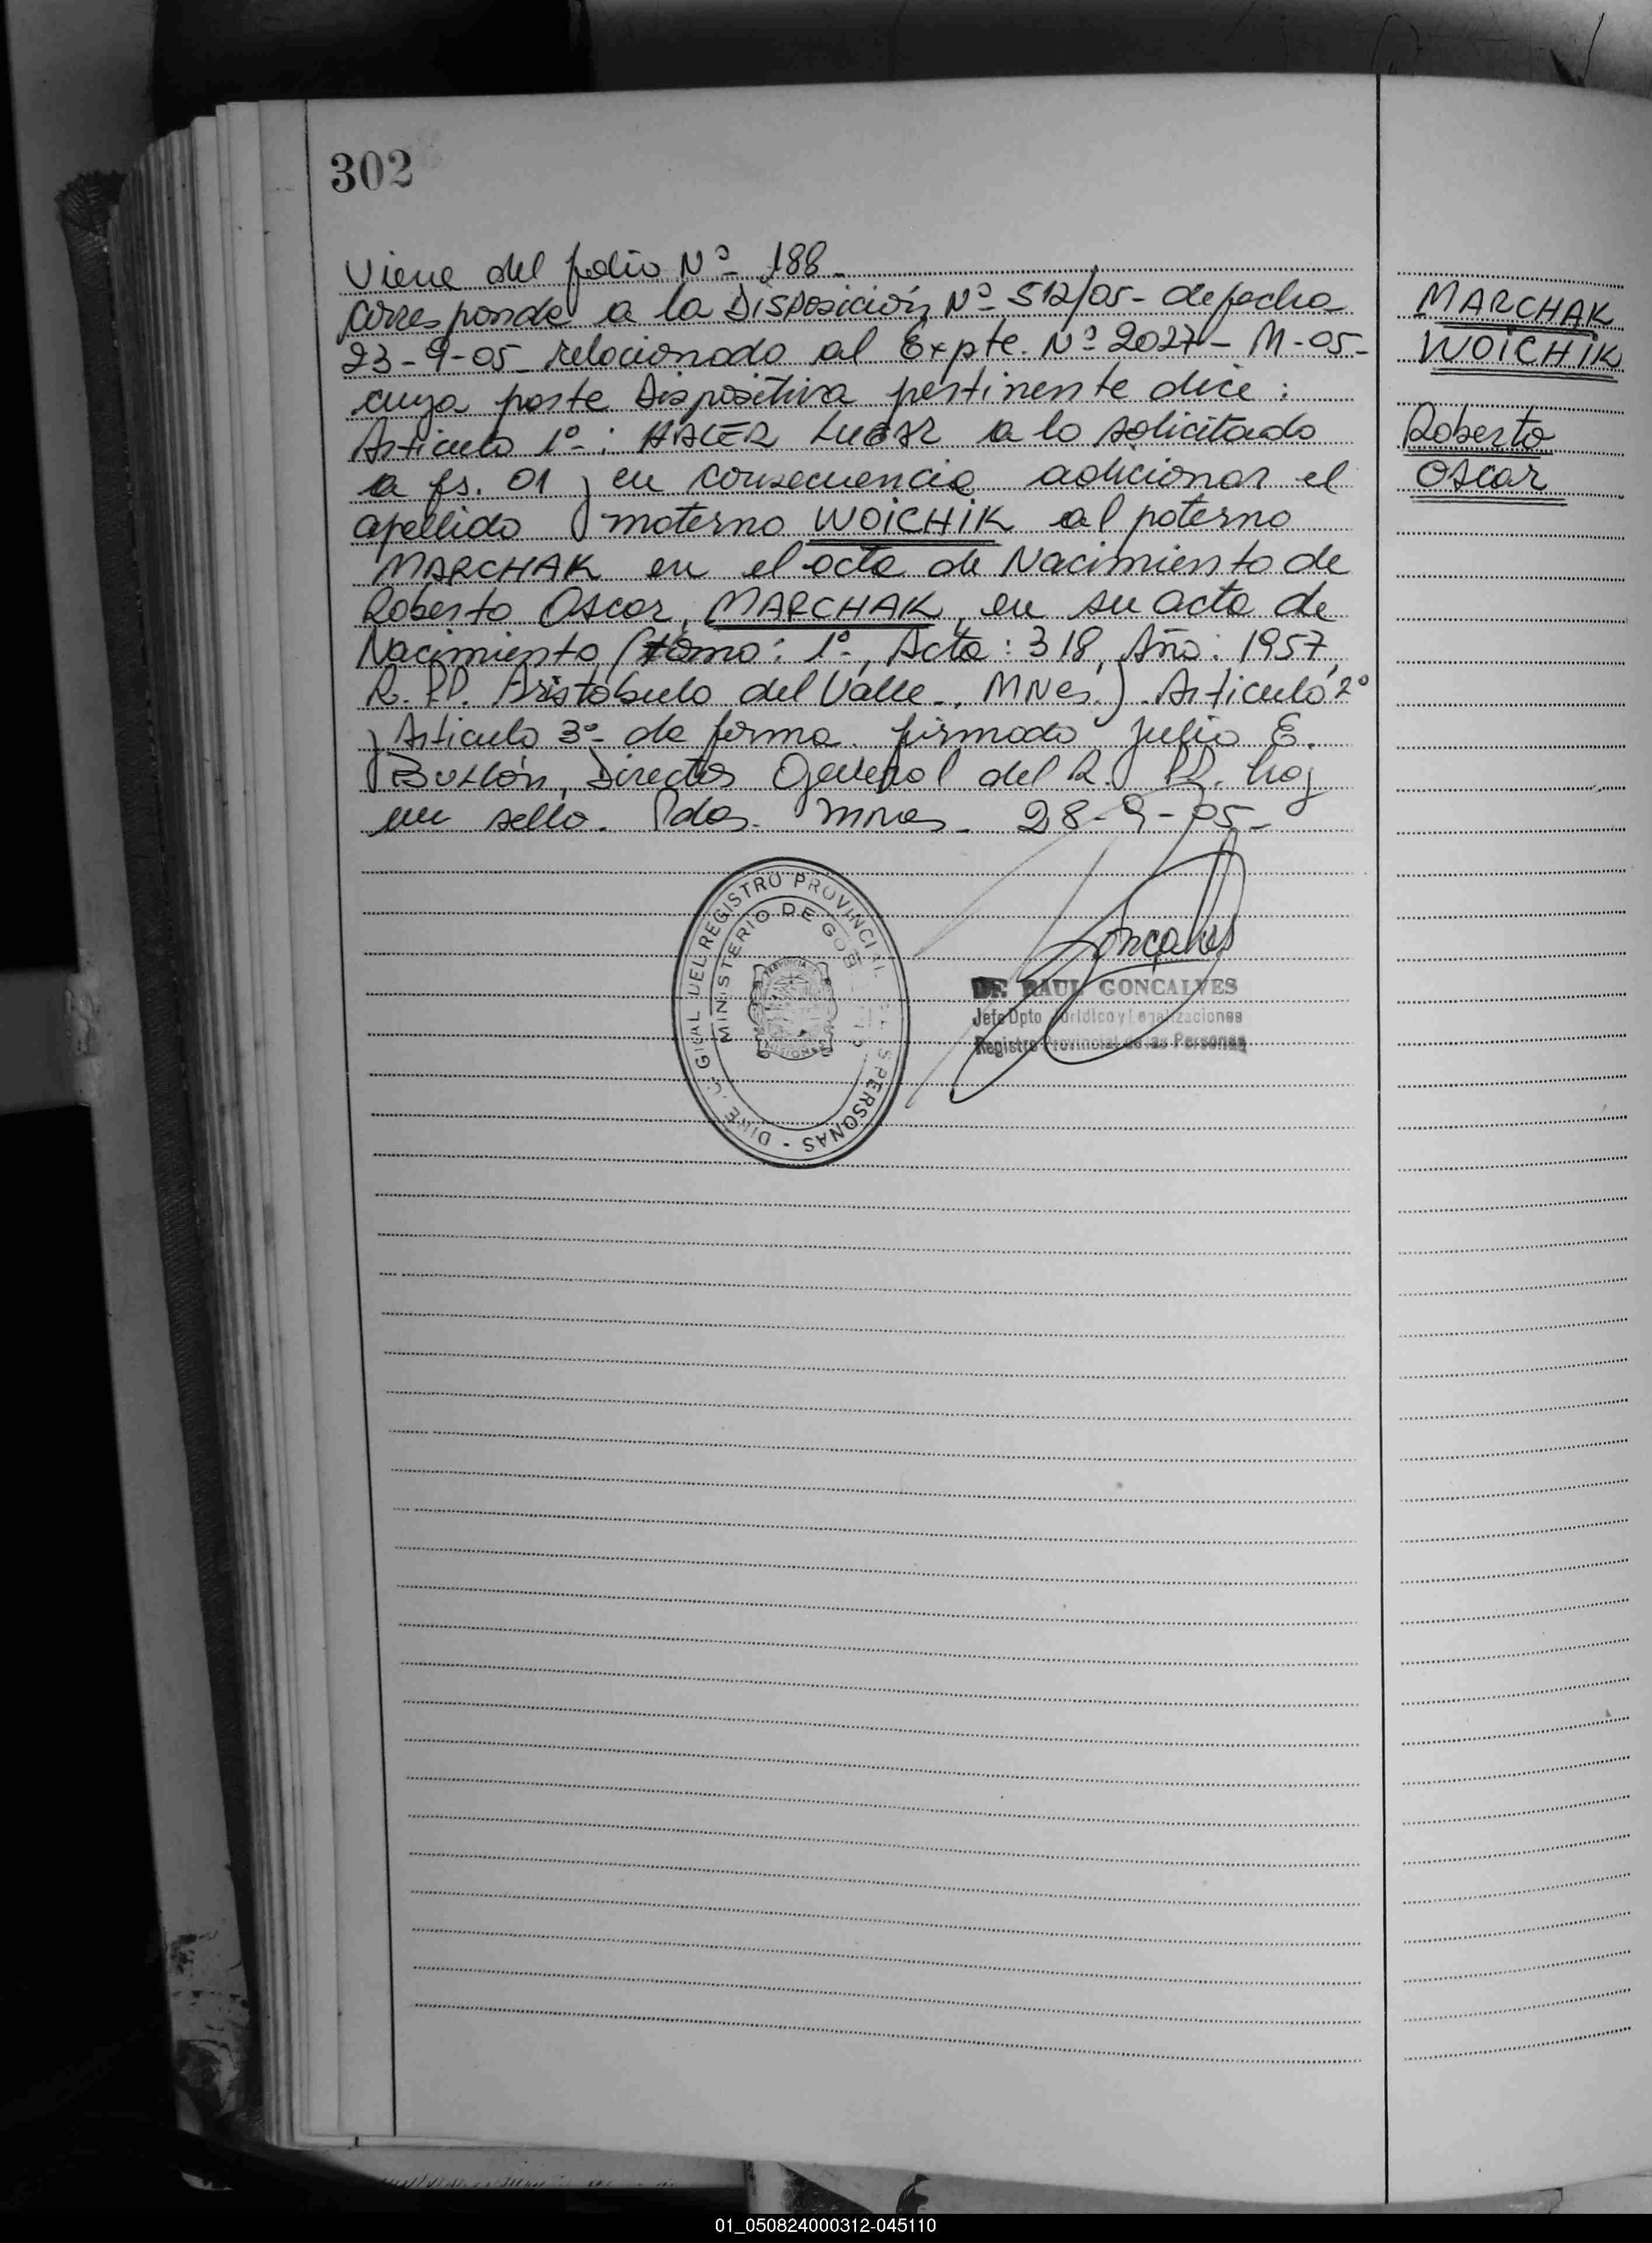 302
Viene del folio Nº 188-
corresponde a la Disposición Nº 512/05- de fecha
23-9-05- relacionado al Expte. Nº 2027- M-05-
cuya parte Dispositiva pertinente dice:
Artículo 1º-: HACER LUGAR a lo solicitado
a fs. 01 y en consecuencia adicionar el
apellido materno WOICHIK al paterno
MARCHAK en el acta de Nacimiento de
Roberto Oscar, MARCHAK, en su acta de
Nacimiento (tomo: 1º-, Acta: 318, Año: 1957,
R. PP. Aristóbulo del Valle-, MNes.). Artículo 2º
y Artículo 3º- de forma. firmado Julio E.
Director General del R. PP. hay
un sello. Pdas. Mnes- 28-9-05-
MARCHAK
WOICHIK
Roberto
Oscar
DEL REGISTRO PROVINCIAL
PERSONAS -
MINISTERIO DE GOB
PROVINCIA
MISIONES
Goncalves
DR. RAUL GONCALVES
Jefe Dpto Jurídico y Legalizaciones
Registro Provincial de las Personas
01_050824000312-045110